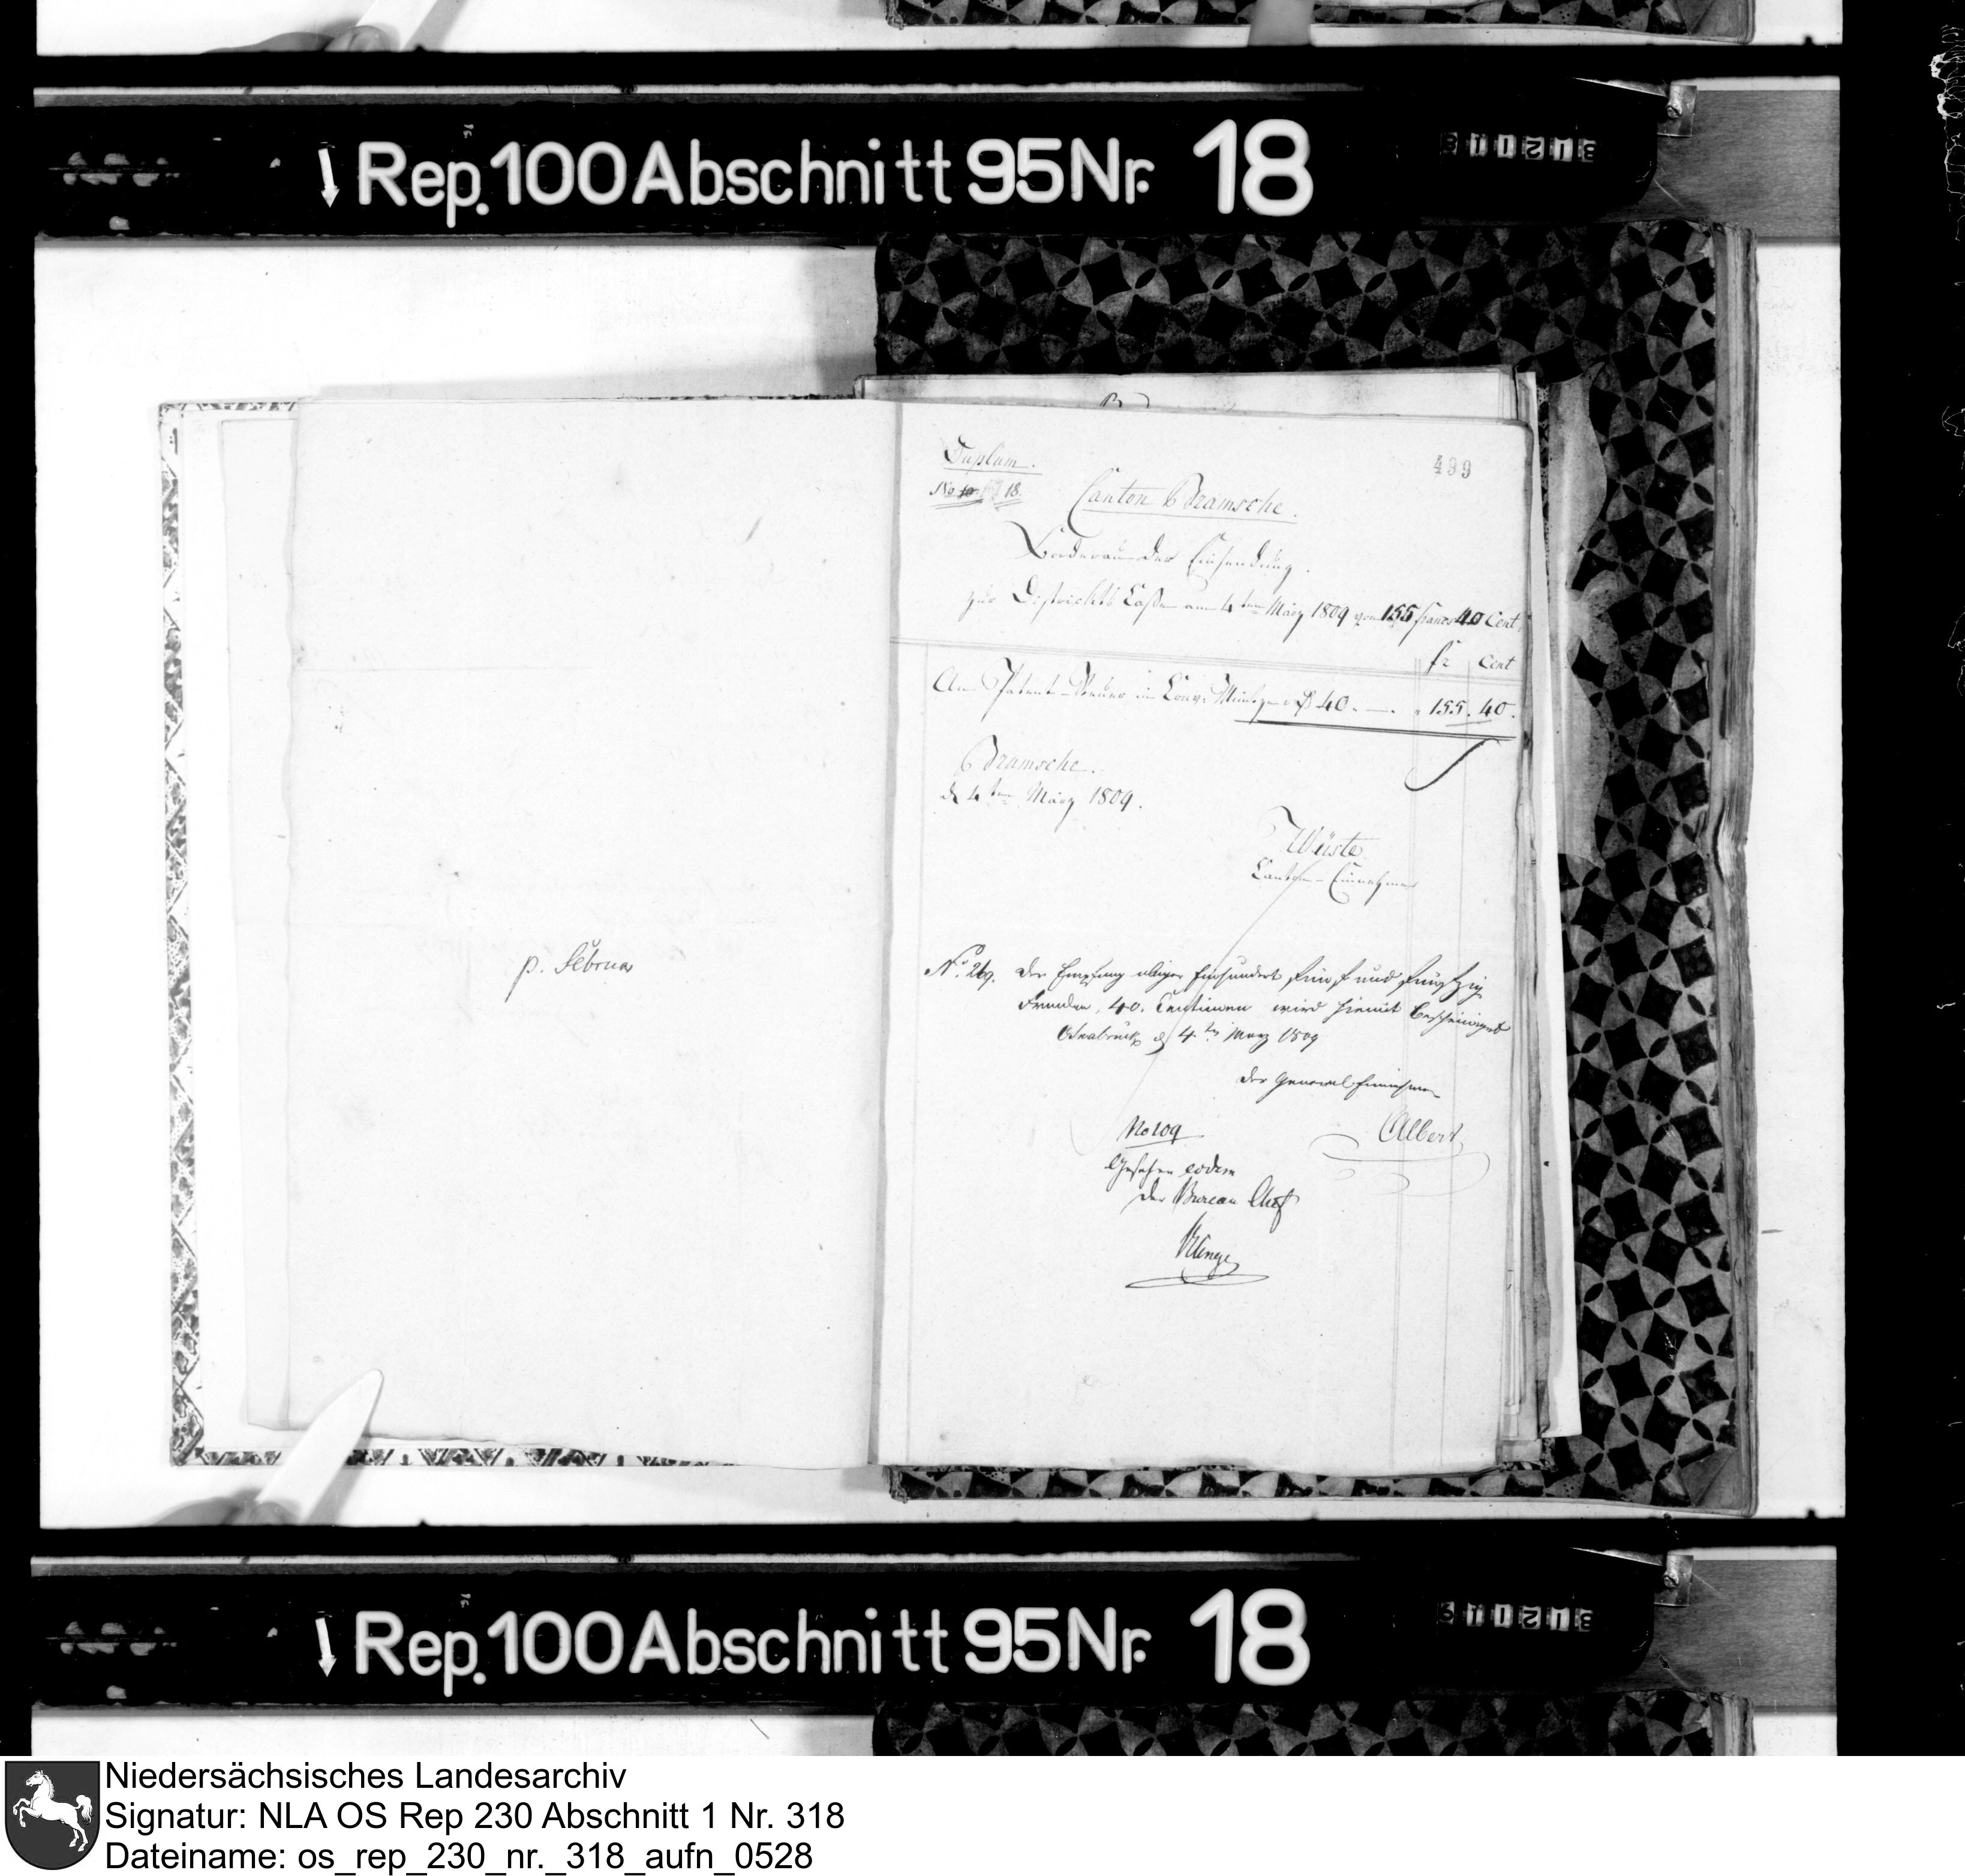 Rep. 100 Abschnitt 95 Nr. 18
p. Februar
499
Duplum.
No 10. 18.
Canton Bramsche.
Borderau der Einsendung.
zur Districts Casse am 4ten März 1809 von 155 francs 40 Cent.
fr Cent
An Patent-Steuer in Conv. Münze 40. — 155. 40.
Bramsche.
d 4ten März 1809.
Wüste
Canton-Einnehmer
No. 269. Der Empfang obiger Einhundert Fünf und Fünfzig
Franken, 40. Centimen wird hiemit bescheinigt
Osnabrück d 4ten März 1809
Der General Einnehmer
Albers
No 109
Gesehen eodem
Der Bureau Chef
Rep. 100 Abschnitt 95 Nr. 18
Niedersächsisches Landesarchiv
Signatur: NLA OS Rep 230 Abschnitt 1 Nr. 318
Dateiname: os_rep_230_nr._318_aufn_0528